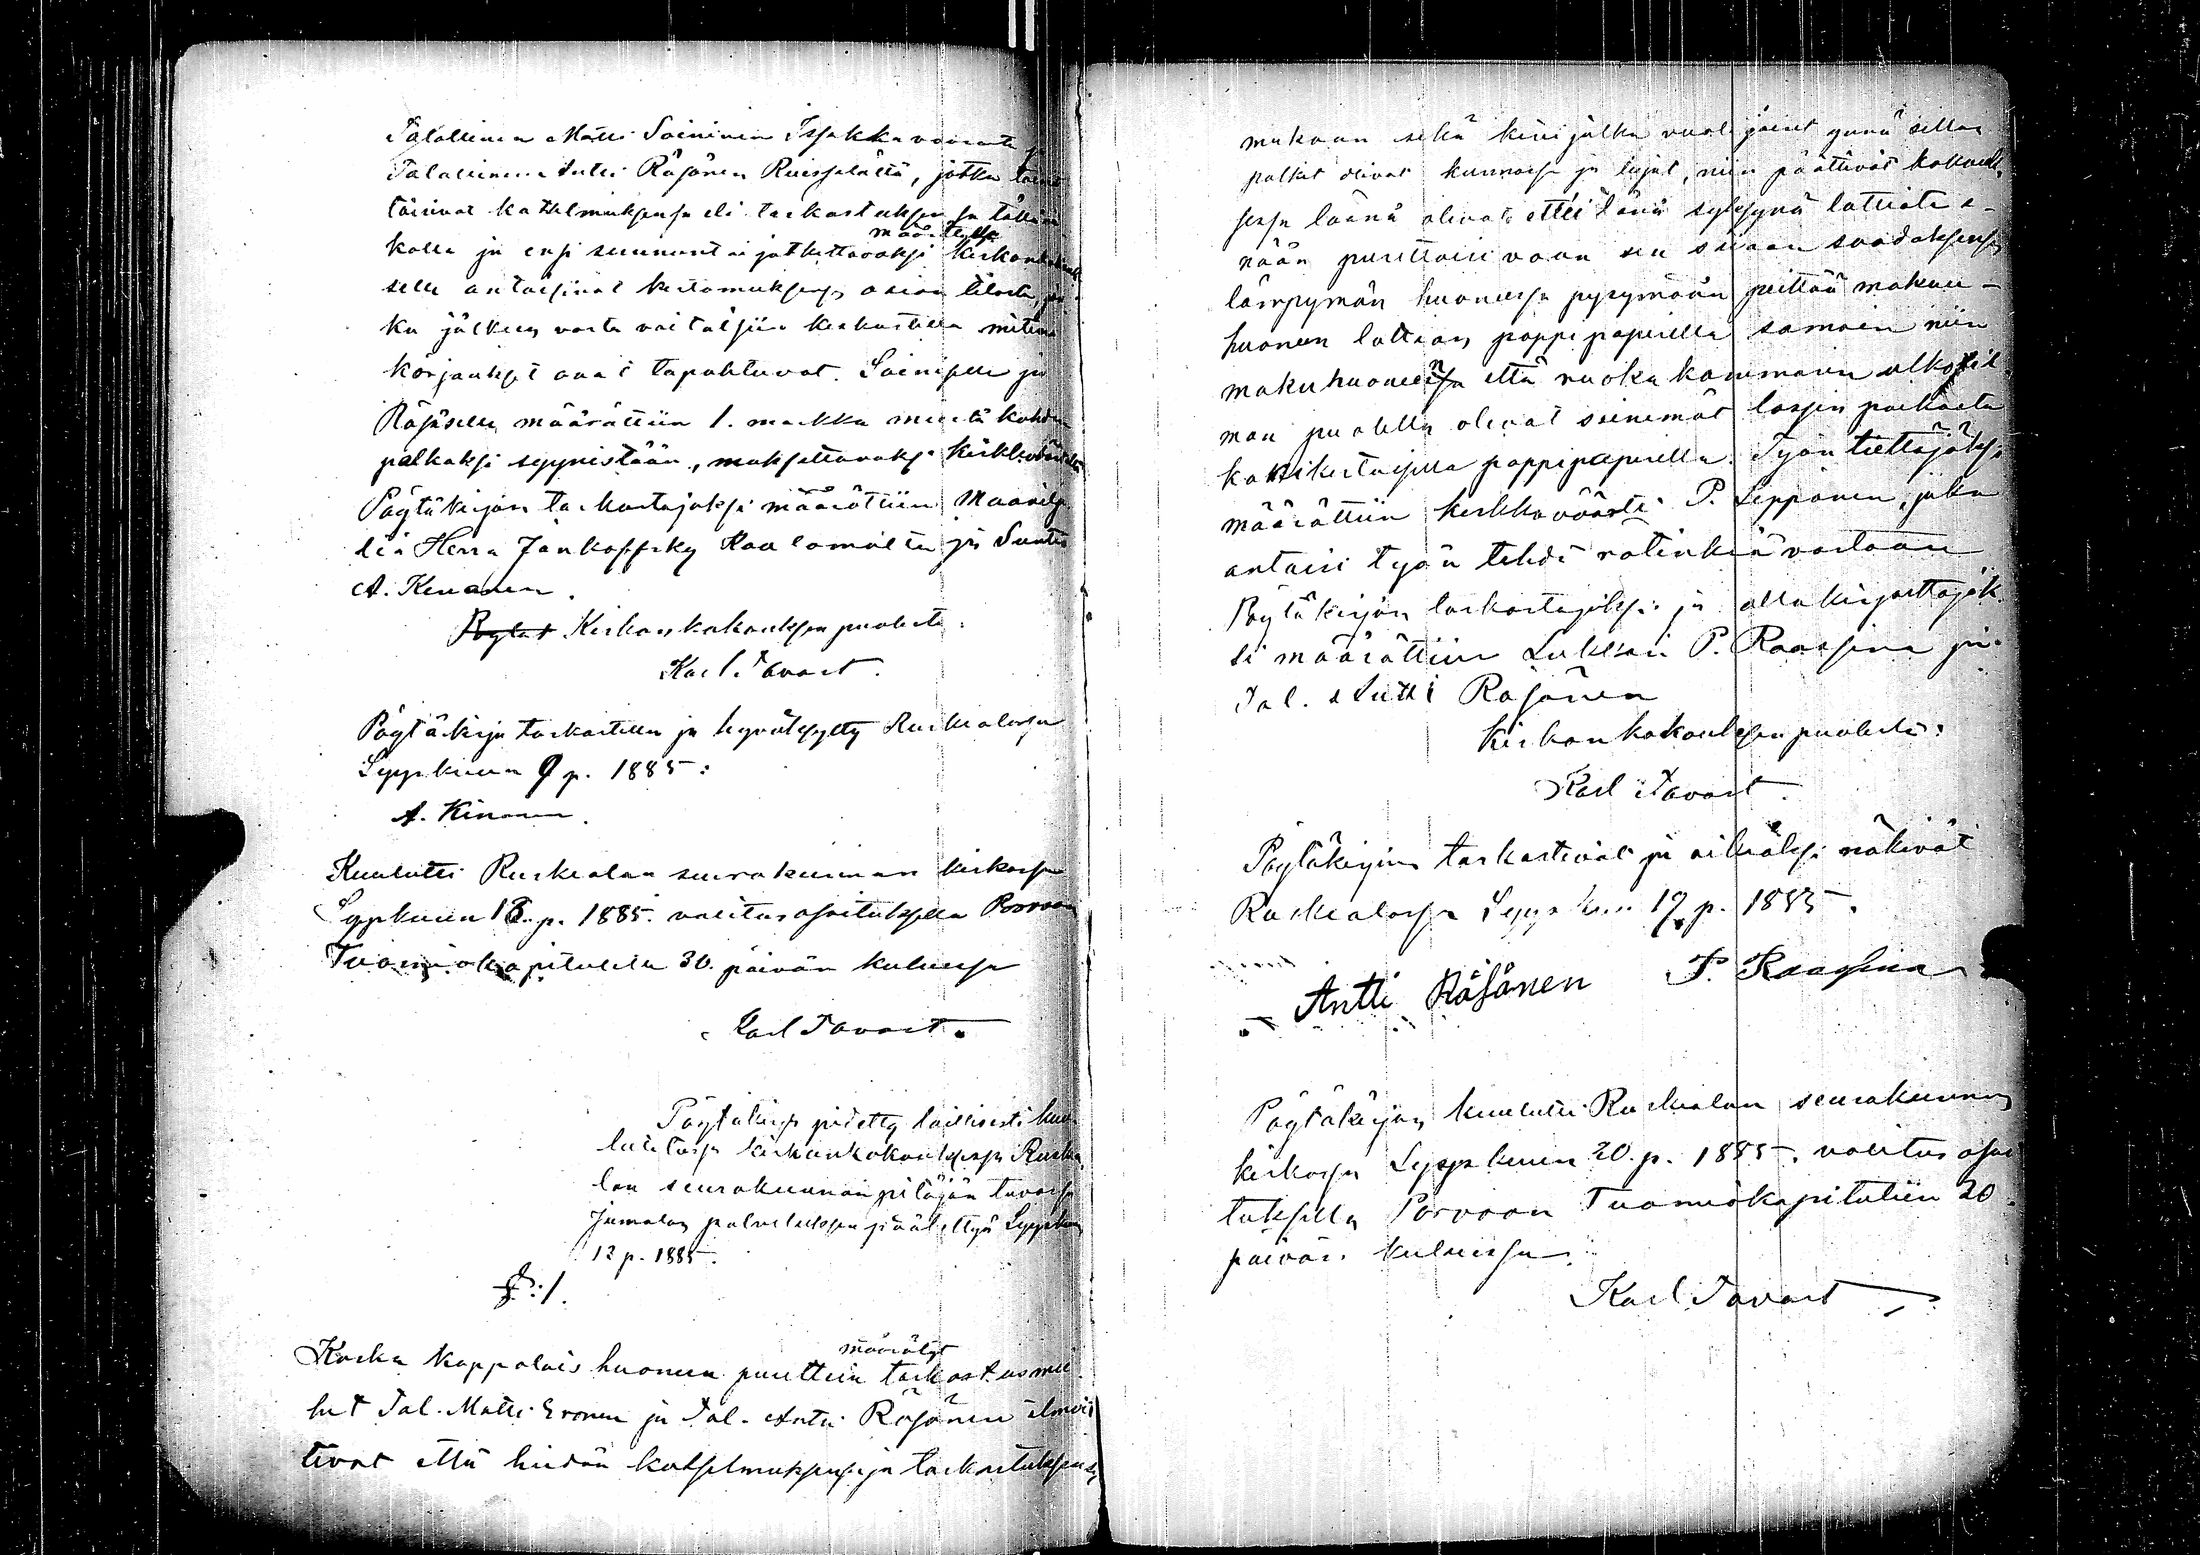 Talollinen Matti Soininen Issakkavaarasta ja
Talollinen Antti Räsänen Ruisselältä, jotka toimit
täisivat katselmuksensa eli tarkastuksensa tällä
määrätyllä
kolla ja ensi sunnuntai jatkettavaksi kirkonkokouk
selle antaisivat kertomuksensa asian tilasta, jon
ka jälkeen vasta voitaisiin keskustella miten
korjaukset ovat tapahtuvat. Soiniselle ja
Räsäselle määrättiin 1. markka miestä kohden
palkaksi syynistään, maksettavaksi kirkkovaroista
Pöytäkirjan tarkastajaksi määrättiin Maanvilje
liä Herra Jankoffsky Kaalamolta ja Suntio
A. Kinanen.
Pöytä Kirkonkokouksen puolesta:
Karl Tavast.
Pöytäkirja tarkastettu ja hyväksytty Ruskealassa
Syyskuun 9 p. 1885:
A. Kinanen.
Kuulutti Ruskealan seurakunnan kirkossa
Syyskuun 13. p. 1885. valitusosoituksella Porvoon
Tuomiokapitulille 30. päivän kuluessa
Karl Tavast.
Pöytäkirja pidetty laillisesti kuu-
lutetussa kirkonkokouksessa Ruskea
lan seurakunnan pitäjän tuvassa
Jumalan palveluksen päätettyä Syyskuun
12 p. 1885.
§:1.
määrätyt
Koska kappalais huoneen puuttein tarkastusmie
het Tal. Matti Eronen ja Tal. Antti Räsänen ilmoit
tivat että heidän katselmuksensa ja tarkastuksensa
mukaan sekä kivijalka
palkit olivat kunnossa ja lujat, niin päättivät kokouk
sessa läsnä olevat ettei tänä syksynä lattiata e-
nään purettaisi vaan sen sijaan saadaksensa
lämpymän huoneessa pysymään peittää makuu-
huoneen lattian pappipaperilla samoin niin
makuhuoneessa että ruoka kammarin ulkosil
man puolella olevat seinämät lassen paikasta
kaksikertaisilla pappipaperilla. Työn teettäjäksi
määrättiin kirkkovääärti P. Leppänen, joka
antaisi työn tehdä rätinkiä vastaan
Pöytäkirjan tarkastajiksi ja allekirjoittajik
si määrättiin Lukkari P. Raassina ja
Tal. Antti Räsänen
Kirkonkokouksen puolesta:
Karl Tavast.
Pöytäkirjan tarkastivat ja oikiaksi näkivät
Ruskealassa Syyskuun 17 p. 1885.
Antti Räsänen P. Raassina
Pöytäkirjan kuulutti Ruskealan seurakunnan
kirkossa Syyskuun 20. p. 1885. valitus osoi
tuksella Porvoon Tuomiokapituliin 30
päivän kuluessa.
Karl Tavast